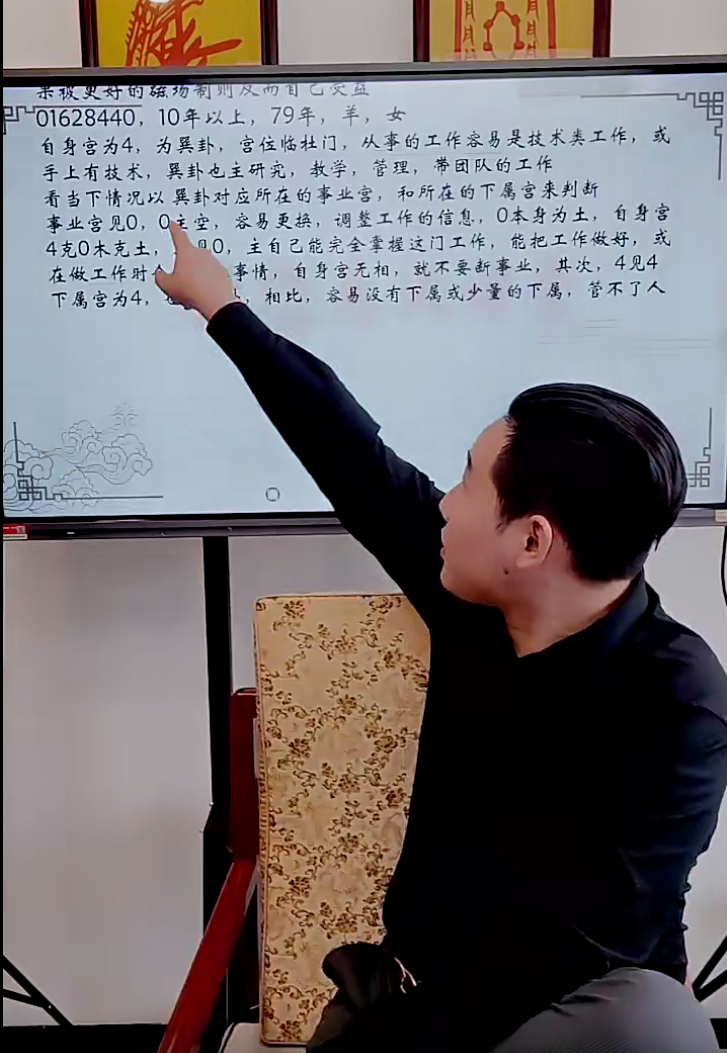 果被更好的磁场制则反而自己受益
01628440，10年以上，79年，羊，女
自身宫为4，为巽卦，宫位临杜门，从事的工作容易是技术类工作，或
手上有技术，巽卦也主研究，教学，管理，带团队的工作
看当下情况以巽卦对应所在的事业宫，和所在的下属宫来判断
事业宫见0，0主空，容易更换，调整工作的信息，0本身为土，自身宫
4克0木克土，见0，主自己能完全掌握这门工作，能把工作做好，或
在做工作时 事情，自身宫无相，就不要断事业，其次，4见4
下属宫为4， ，相比，容易没有下属或少量的下属，管不了人